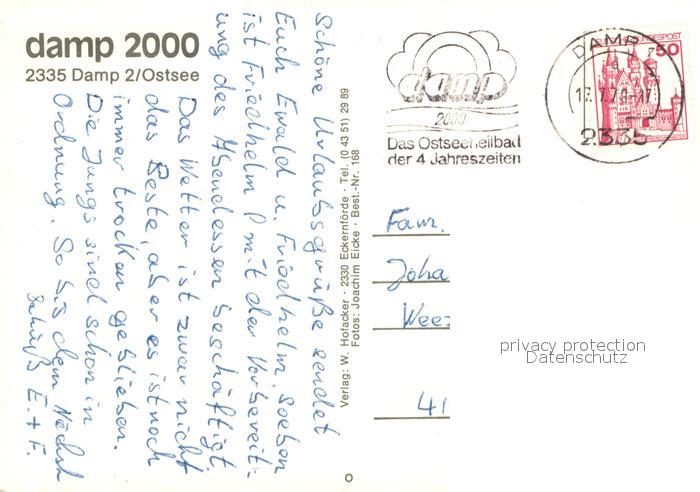 damp 2000
2335 Damp 2/Ostsee
Schöne Urlaubsgrüße sendet
Euch Ewald u. Friedhelm. Soeben
ist Friedhelm P mit der Vorbereit-
ung des Abendessen beschäftigt.
Das Wetter ist zwar nicht
das Beste, aber es ist noch
immer trocken geblieben.
Die Jungs sind schon in
Ordnung. So bis dem Nächst
Tschüß E. + F.
Verlag: W. Hofacker · 2330 Eckernförde · Tel. (0 43 51) 29 89
Fotos: Joachim Eicke · Best.-Nr. 168
damp
2000
Das Ostseeheilbad
der 4 Jahreszeiten
DAMP
2335
BUNDESPOST
50
Fam.
Joha
Weez
41
privacy protection
Datenschutz